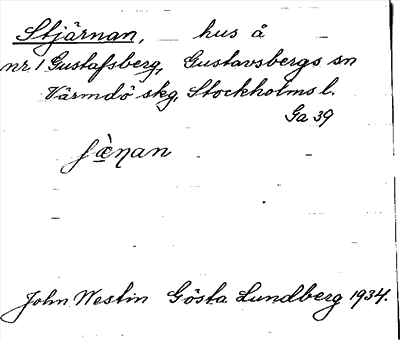 Stjärnan, hus å
nr. 1 Gustafsberg, Gustavsbergs sn
Värmdö skg, Stockholms l.
Ga 39
ʃæ̀ηan
John Westin Gösta Lundberg 1934.